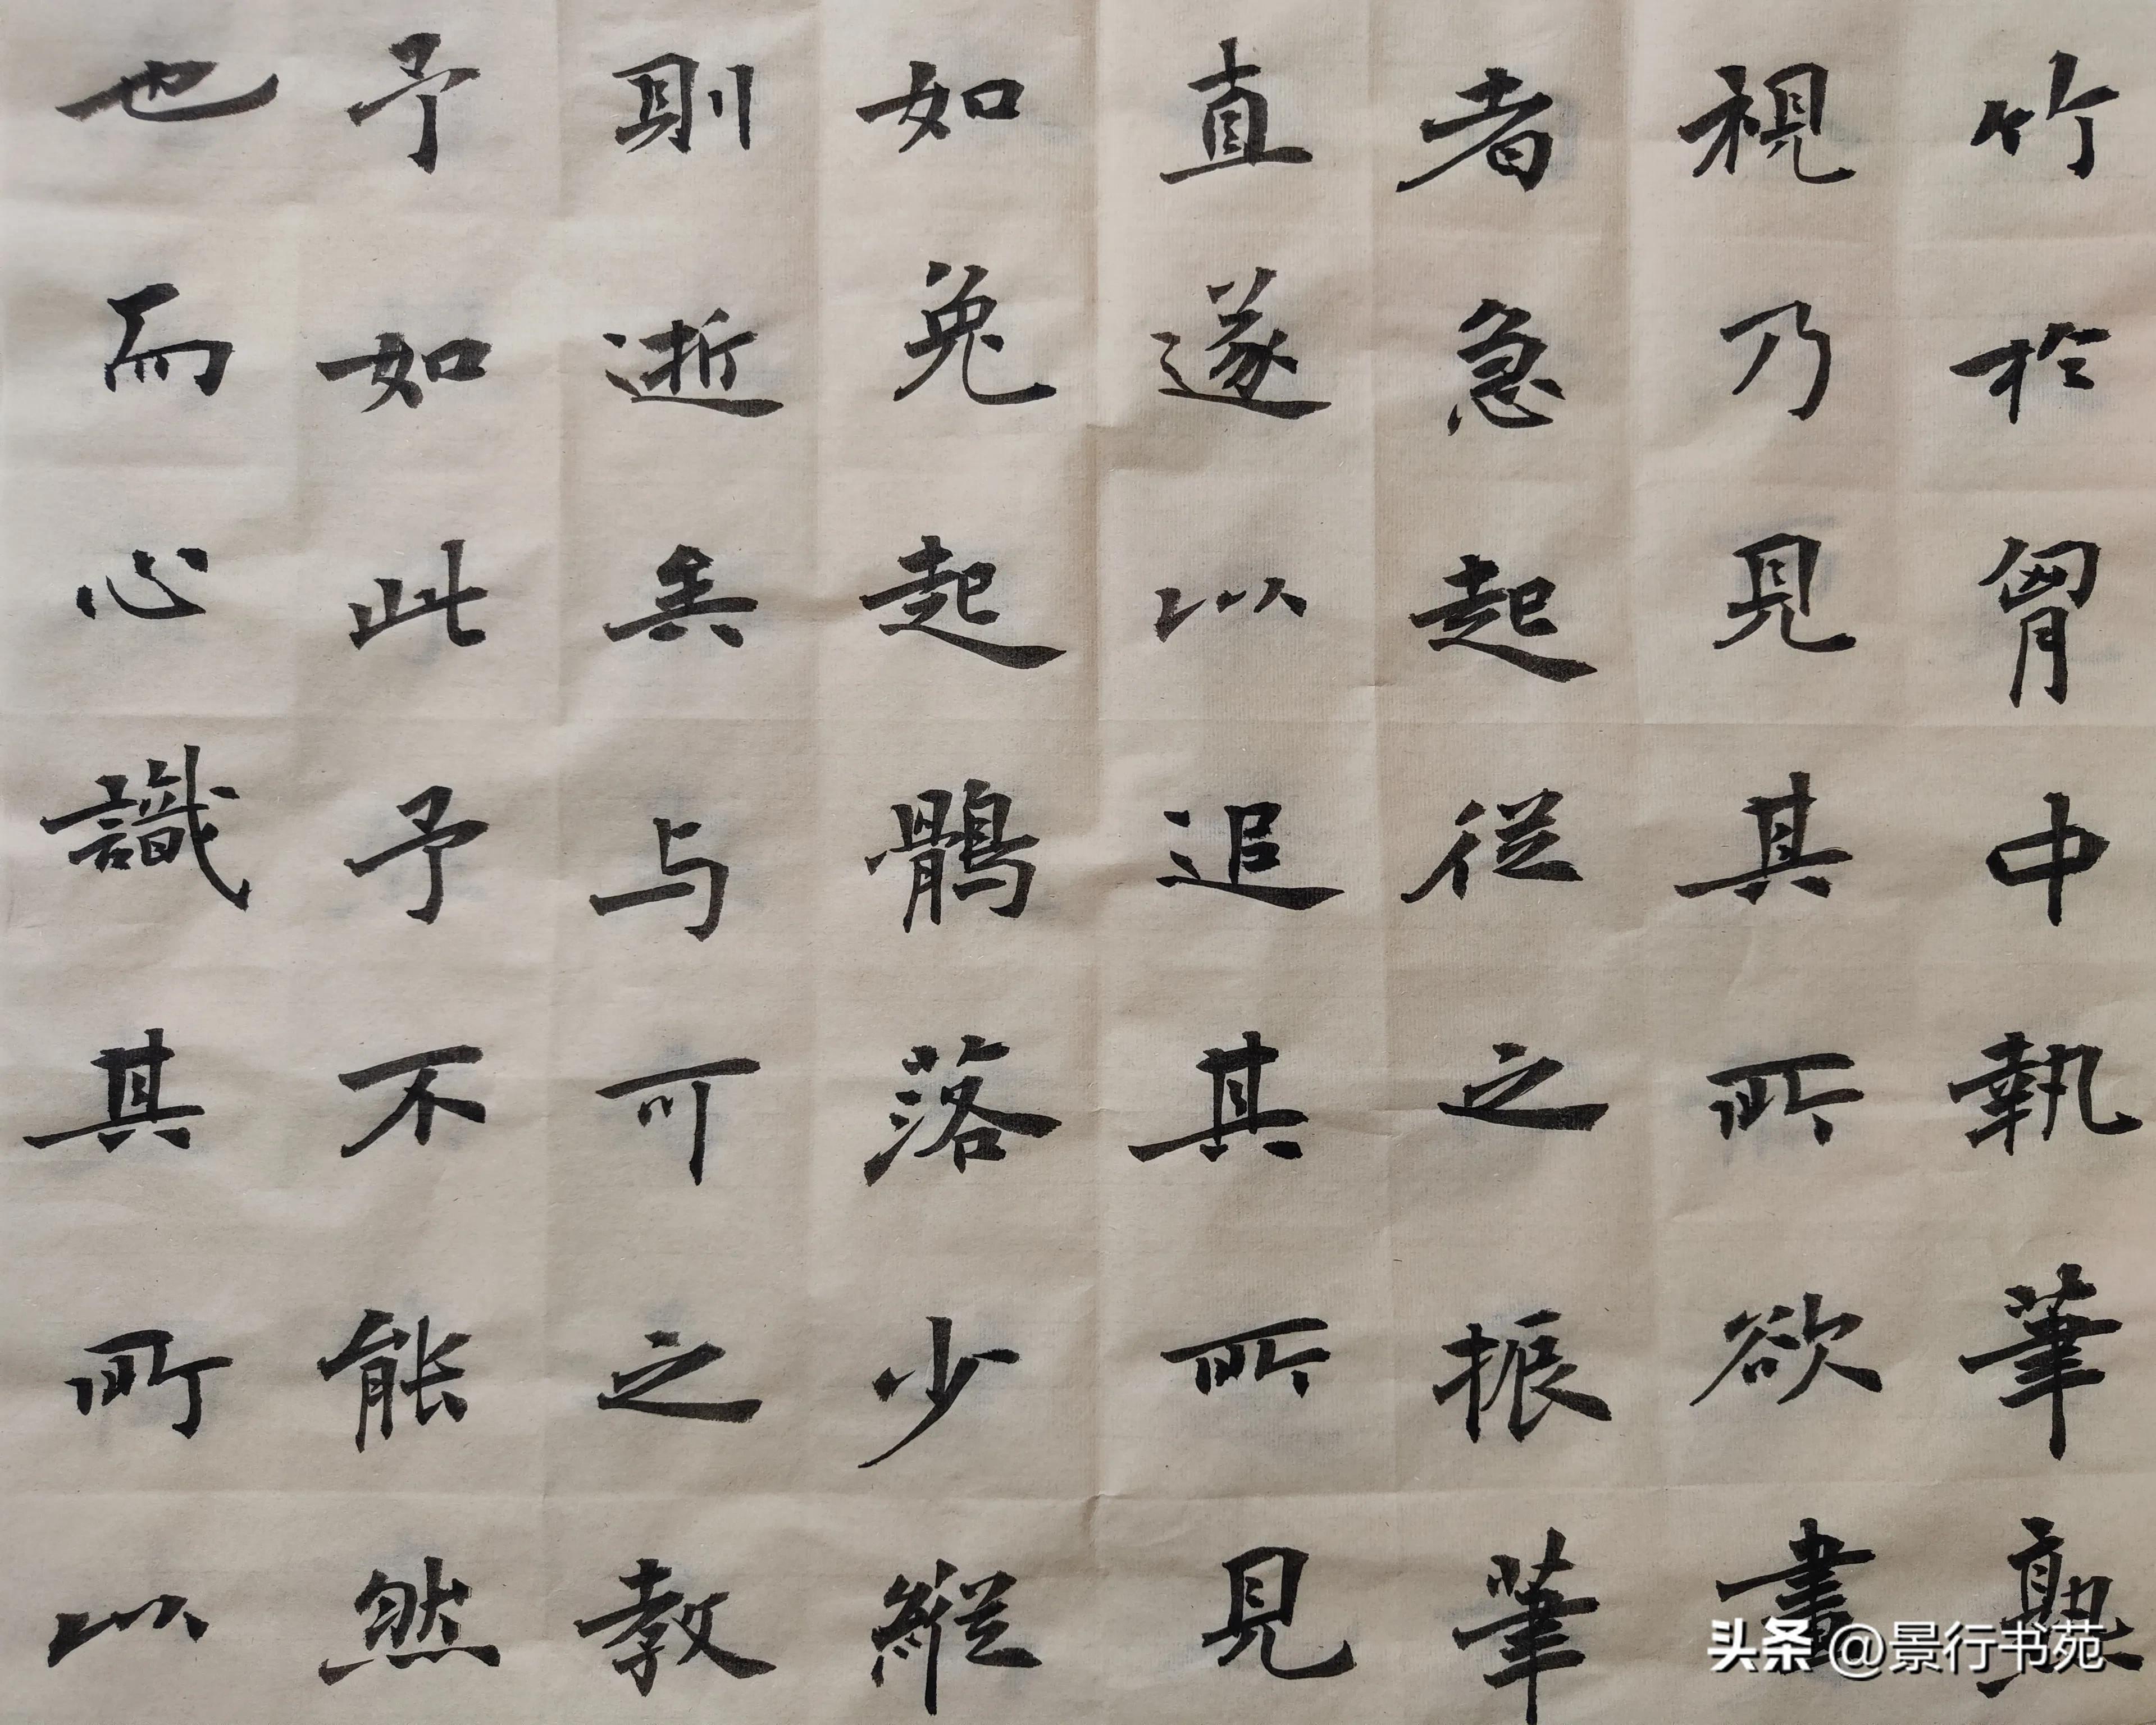 竹於胷中執筆熟
視乃見其所欲畫
者急起從之振筆
直遂以追其所見
如兔起鶻落少縱
則逝矣与可之教
予如此予不能然
也而心識其所以
头条 @景行书苑